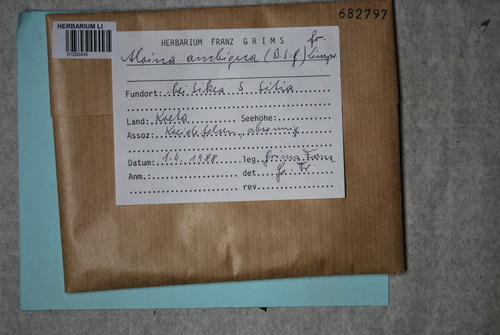 682797
HERBARIUM LI
01250435
HERBARIUM FRANZ GRIMS fr.
Aloina ambigua (B.S.G.) Limpr.
Fundort: bei Sikea S Sitia
Land: Kreta Seehöhe:
Assoz:
Datum: 1.4.1988 leg. Grims Franz
Anm.: det. Gr. Fr.
rev.